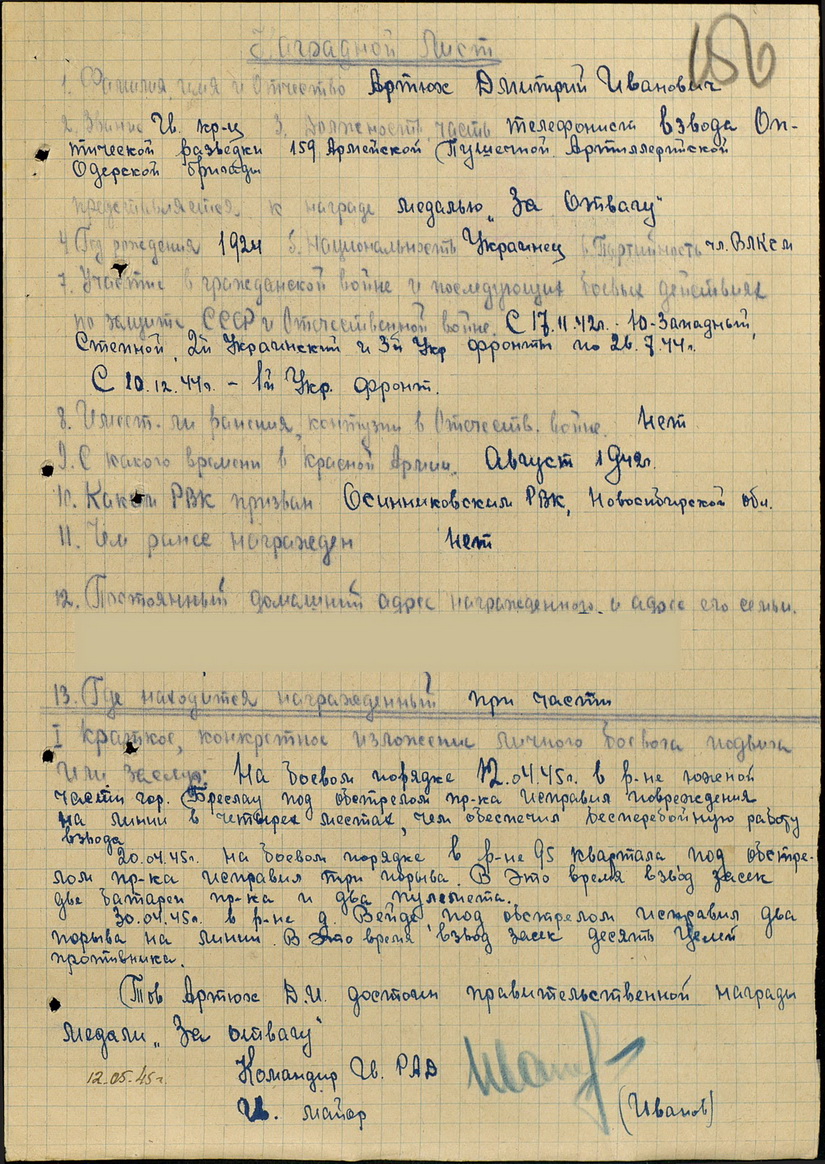 Наградной Лист
156
1. Фамилия, имя и Отчество Артюх Дмитрий Иванович
2. Звание Гв. кр-ц 3. Должность, часть телефонист взвода Оп-
тической разведки 159 Армейской Пушечной Артиллерийской
Одерской бригады
представляется к награде медалью „За Отвагу“
4 Год рождения 1924 5. Национальность Украинец 6 Партийность чл. ВЛКСМ
7. Участие в гражданской войне и последующих боевых действиях
по защите СССР и Отечественной войне. С 17.11.42г. - Ю-Западный,
Степной, 2й Украинский и 3й Укр фронты по 26.7.44г.
С 20.12.44г. - 1й Укр. фронт.
8. Имеет-ли ранения, контузии в Отечеств. войне. Нет
9. С какого времени в Красной Армии. Август 1942г.
10. Каким РВК призван Осинниковским РВК, Новосибирской обл.
11. Чем ранее награжден Нет
12. Постоянный домашний адрес награжденного и адрес его семьи.
13. Где находится награжденный при части
I Краткое, конкретное изложение личного боевого подвига
или заслуг: На боевом порядке 12.04.45г. в р-не южной
части гор. Бреслау под обстрелом пр-ка исправил повреждения
на линии в четырех местах, чем обеспечил бесперебойную работу
взвода
20.04.45г. на боевом порядке в р-не 95 квартала под обстре-
лом пр-ка исправил три порыва. В это время взвод засек
две батареи пр-ка и два пулемета.
30.04.45г. в р-не д. Вейде, под обстрелом исправил два
порыва на линии. В это время взвод засек десять целей
противника.
Тов Артюх Д.И. достоин правительственной награды
медали „За отвагу“
12.05.45г.
Командир Гв. РАД
Гв. майор (Иванов)